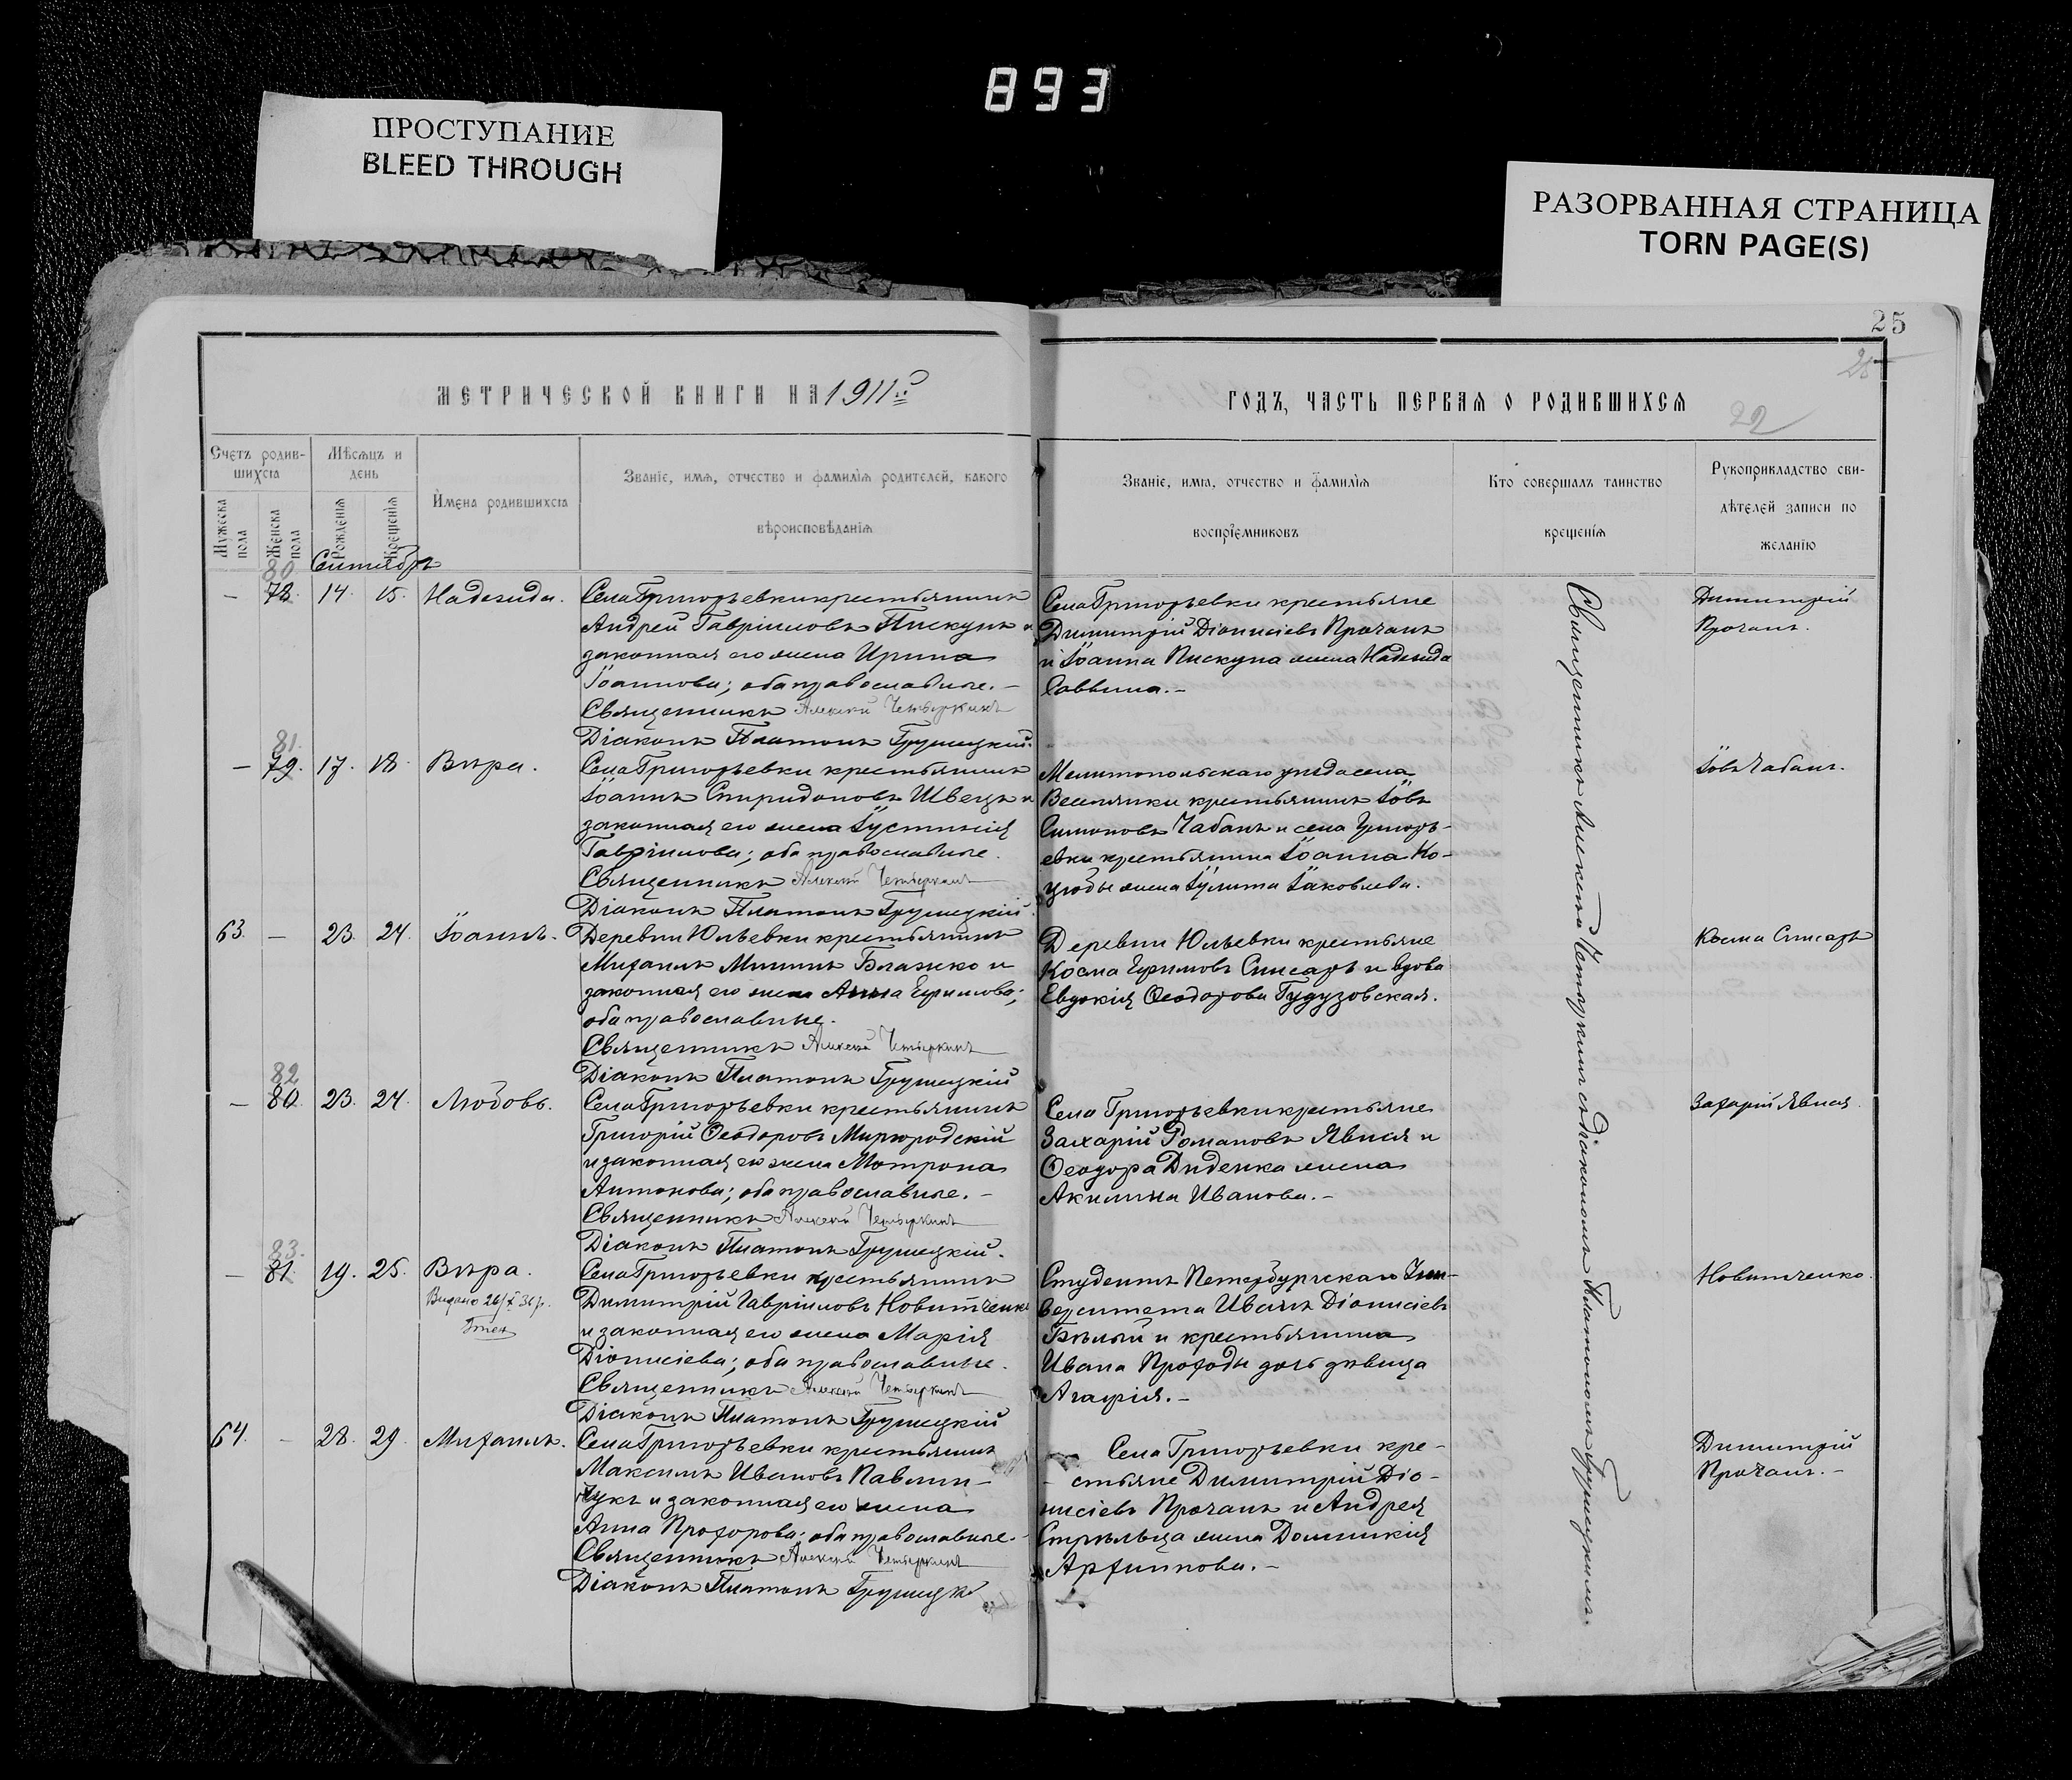 893
ПРОСТУПАНИЕ
BLEED THROUGH
РАЗОРВАННАЯ СТРАНИЦА
TORN PAGE(S)
25
МЕТРИЧЕСКОЙ КНИГИ НА 1911й
ГОДЪ, ЧАСТЬ ПЕРВАЯ О РОДИВШИХСЯ
22
Счетъ родив-
шихся
Мѣсяцъ и
день
Имена родившихся
Званіе, имя, отчество и фамилія родителей, какого
вѣроисповѣданія
Званіе, имя, отчество и фамилія
воспріемниковъ
Кто совершалъ таинство
крещенія
Рукоприкладство сви-
дѣтелей записи по
желанію
Мужеска
пола
Женска
пола
Рожденія
Крещенія
Сентябрь
80
— 78. 14. 15. Надежда.
Села Григорьевки крестьянинъ
Андрей Гавріиловъ Пискунъ и
законная его жена Ирина
Іоаннова; оба православные. —
Священникъ Алексий Четыркинъ
Діаконъ Платонъ Грушецкій.
Села Григорьевки крестьяне
Димитрій Діонисіевъ Прочанъ
и Іоанна Пискуна жена Надежда
Саввина. —
Димитрій
Прочанъ.
81.
— 79. 17. 18. Вѣра.
Села Григорьевки крестьянинъ
Іоаннъ Спиридоновъ Швецъ и
законная его жена Іустинія
Гавріилова; оба православные.
Священникъ Алексий Четыркинъ
Діаконъ Платонъ Грушецкій.
Мелитопольскаго уѣзда села
Веселянки крестьянинъ Іовъ
Симоновъ Чабанъ и села Григорь-
евки крестьянина Іоанна Ко-
цюбы жена Іулита Іаковлева.
Іовъ Чабанъ.
63. — 23. 24. Іоаннъ.
Деревни Юльевки крестьянинъ
Михаилъ Мининъ Блажко и
законная его жена Анна Ефимова;
оба православные.
Священникъ Алексий Четыркинъ
Діаконъ Платонъ Грушецкій
Деревни Юльевки крестьяне
Косма Ефимовъ Слисарь и вдова
Евдокія Ѳеодорова Гудузовская.
Косма Слисарь
82
— 80. 23. 24. Любовь.
Села Григорьевки крестьянинъ
Григорій Ѳеодоровъ Миргородскій
и законная его жена Мотрона
Антонова; оба православные. —
Священникъ Алексий Четыркинъ
Діаконъ Платонъ Грушецкій.
Села Григорьевки крестьяне
Захарій Романовъ Явная и
Ѳеодора Диденка жена
Акилина Иванова. —
Захарій Явная.
83.
— 81. 19. 25. Вѣра.
Видано 26/X 36 р.
Села Григорьевки крестьянинъ
Димитрій Гавріиловъ Новитченко
и законная его жена Марія
Діонисіева; оба православные.
Священникъ Алексий Четыркинъ
Діаконъ Платонъ Грушецкій
Студентъ Петербургскаго Уни-
верситета Иванъ Діонисіевъ
Бѣлый и крестьянина
Ивана Проходы дочь дѣвица
Агафія. —
Новитченко.
64. — 28. 29. Михаилъ.
Села Григорьевки крестьянинъ
Максимъ Ивановъ Павлин-
чукъ и законная его жена
Анна Прохорова; оба православные. —
Священникъ Алексий Четыркинъ
Діаконъ Платонъ Грушецк
Села Григорьевки кре-
стьяне Димитрій Діо-
нисіевъ Прочанъ и Андрея
Стрѣльца жена Домникія
Архипова. —
Димитрій
Прочанъ. —
Священникъ Алексій Четыркинъ съ діакономъ Платономъ Грушецкимъ.